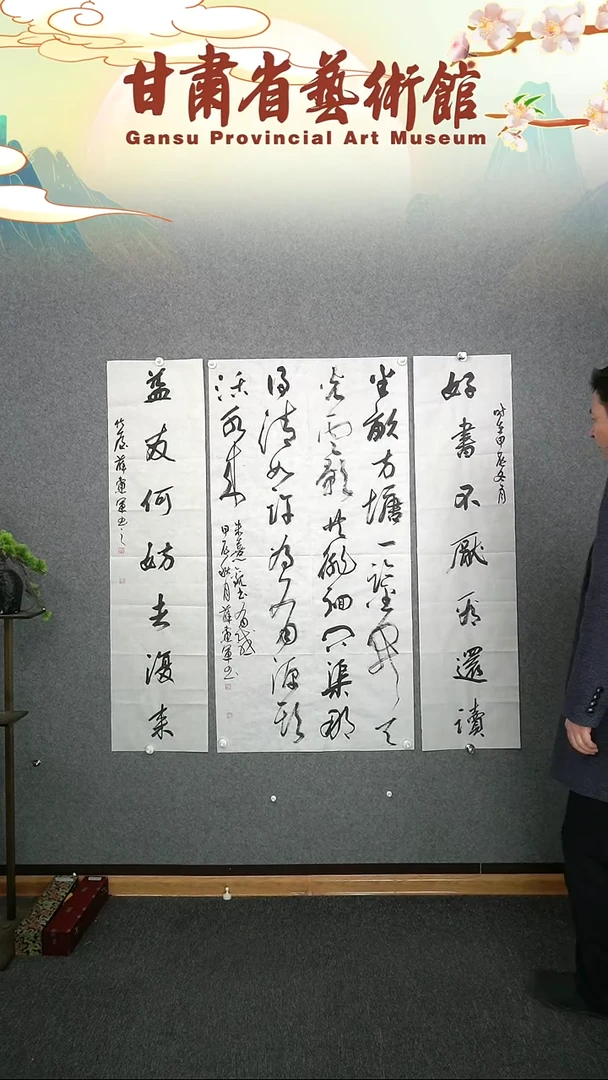 甘肅省藝術館
Gansu Provincial Art Museum
好書不厭看還讀
时在甲辰冬月
半畝方塘一鑒開天
光雲影共徘徊問渠那
得清如許為有源頭
活水來
朱熹 有感
甲辰秋月薛 軍书
益友何妨去復來
薛 軍书之